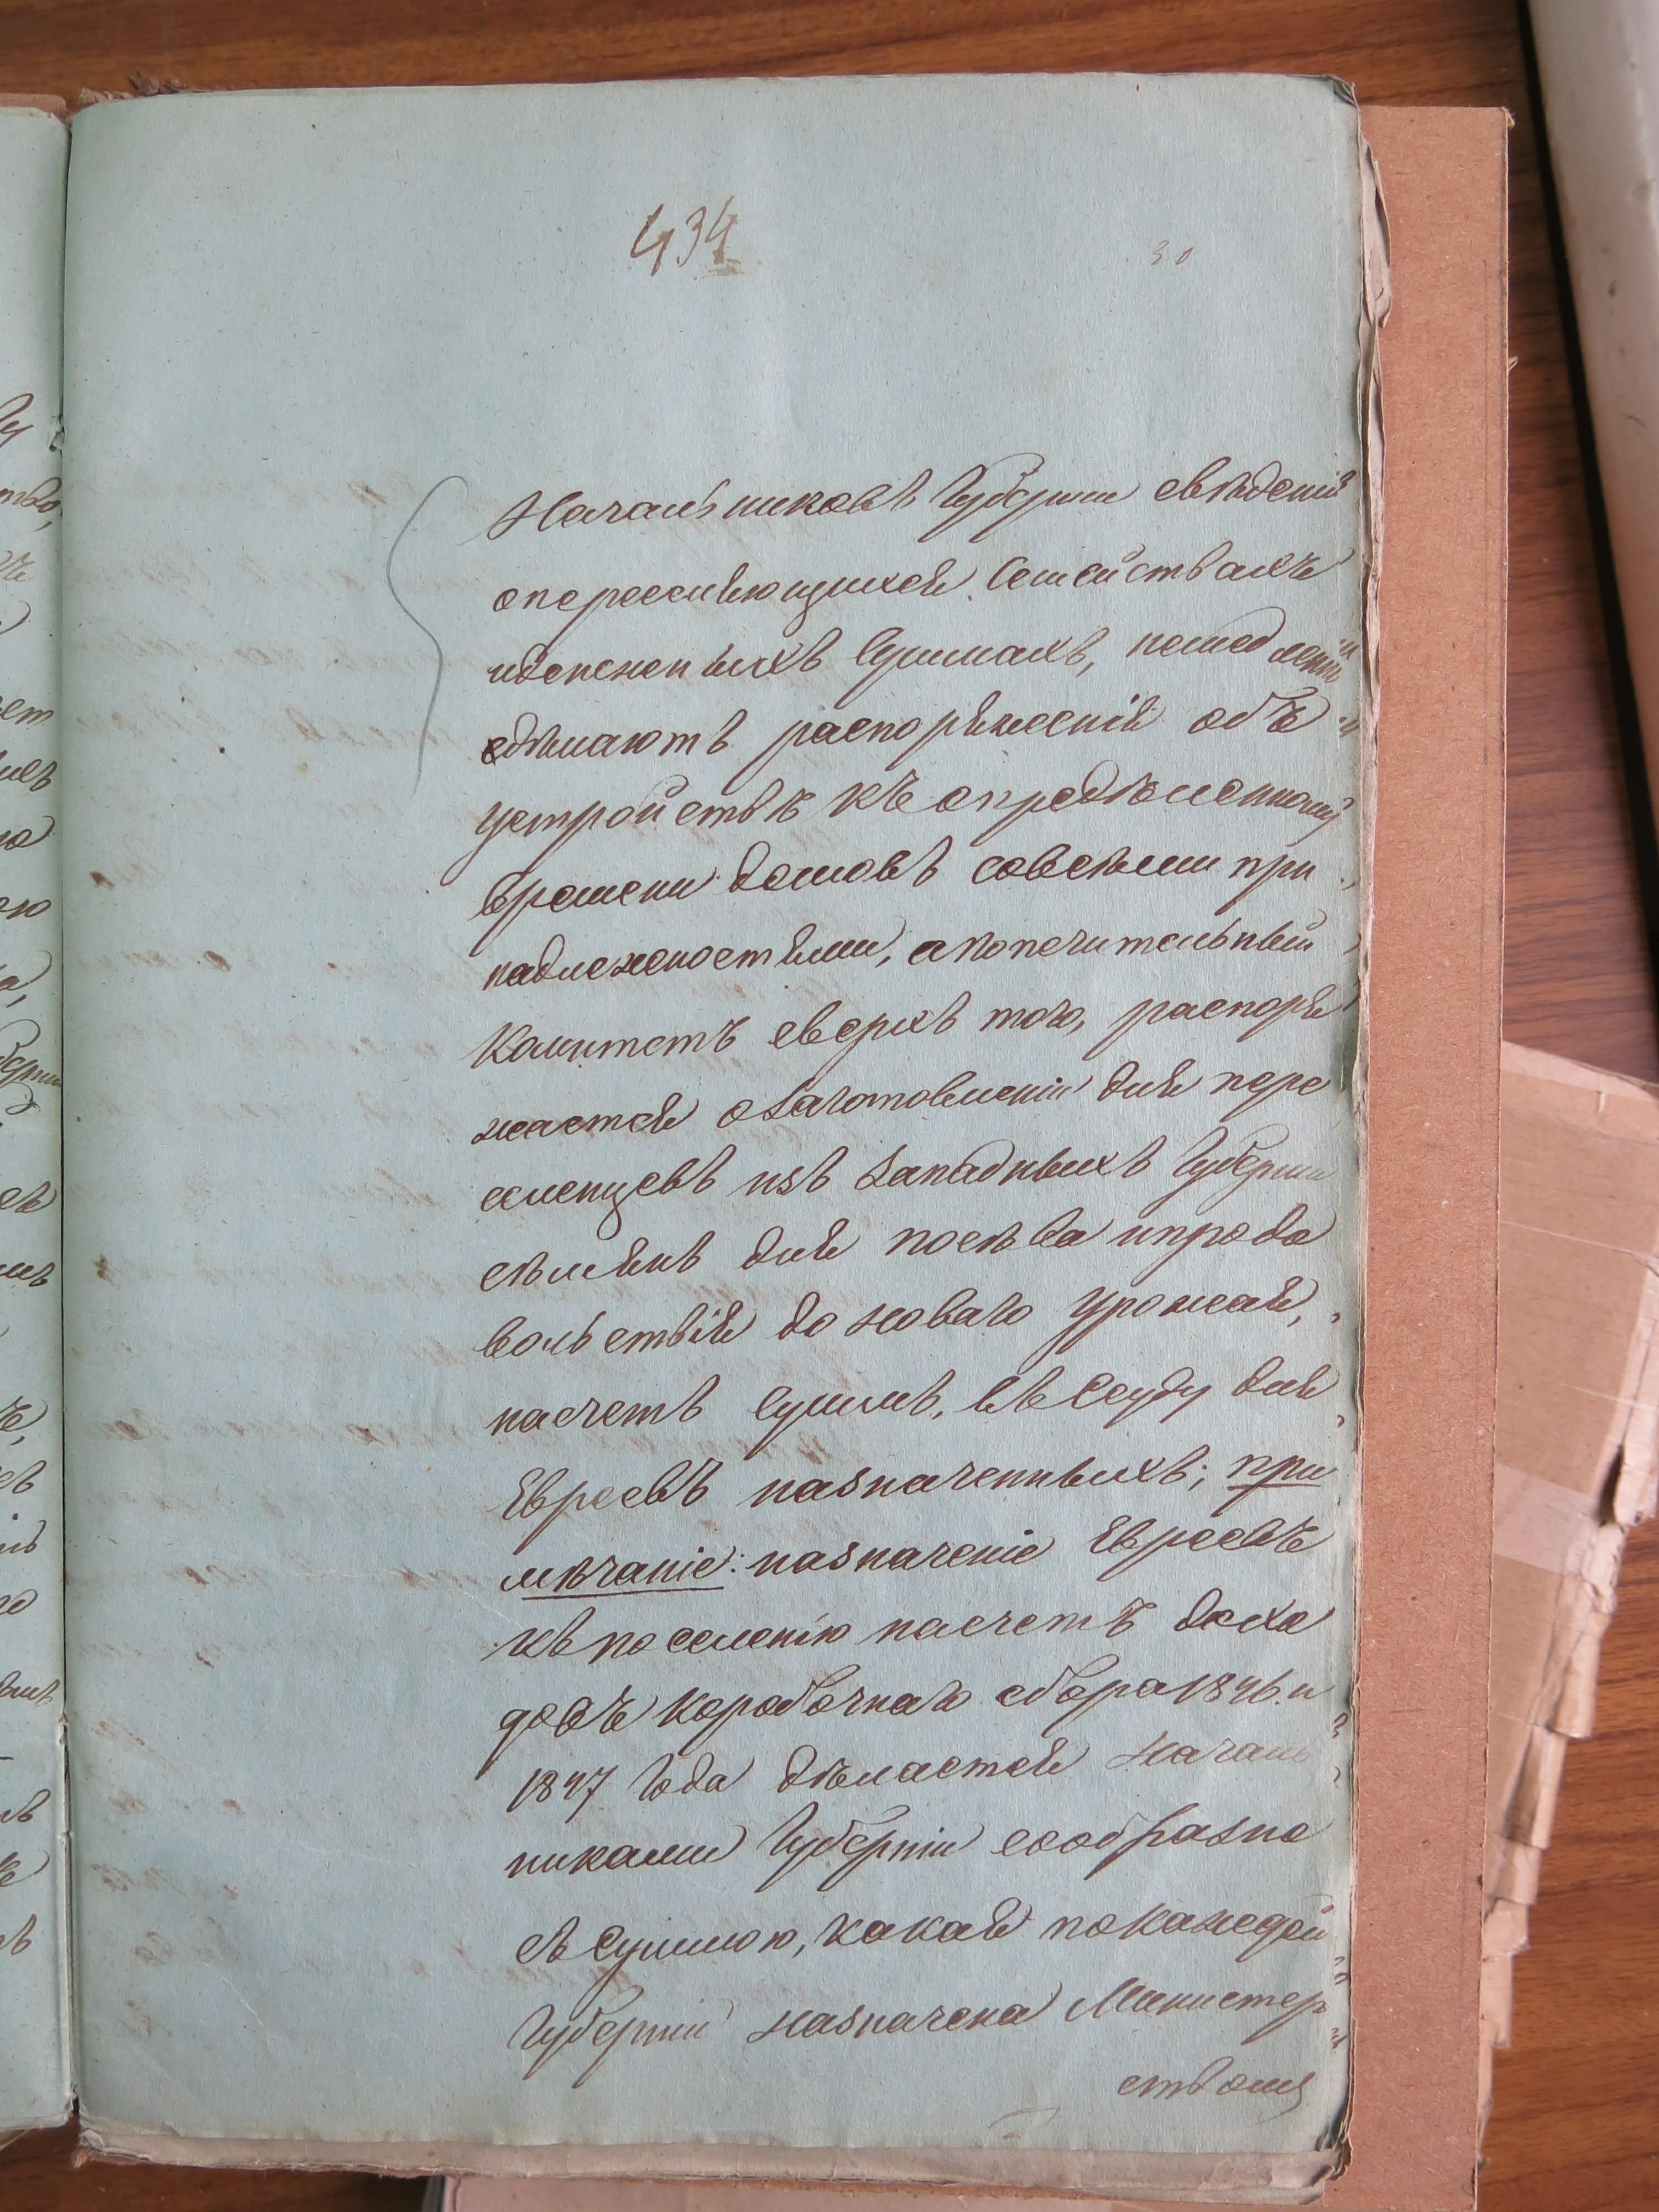 434
30
Начальниковъ Губерніи свѣденій
опереселяющихся Семействахъ
иденежныхъ Суммахъ, немедленно
сдѣлаютъ распоряженія объ
устройствѣ къ опредѣленному
времени домовъ совсѣми при
надлежностями, апопечительный
Комитетъ сверхъ того, распоря
жается озаготовленіи для пере
селенцевъ изъ Западныхъ Губерній
сѣмянъ для посѣва ипродо
вольствія до новаго урожая,
насчетъ Суммъ, въ Ссуду для
Евреевъ назначенныхъ; при
мѣчаніе: назначеніе Евреевъ
къ поселенію насчетъ дохо
довъ коробочнаго сбора 1846. и
1847 Года дѣлается Началь
никами Губерніи сообразно
съ Суммою, какая покаждой
Губерніи назначена Министер
ствомъ